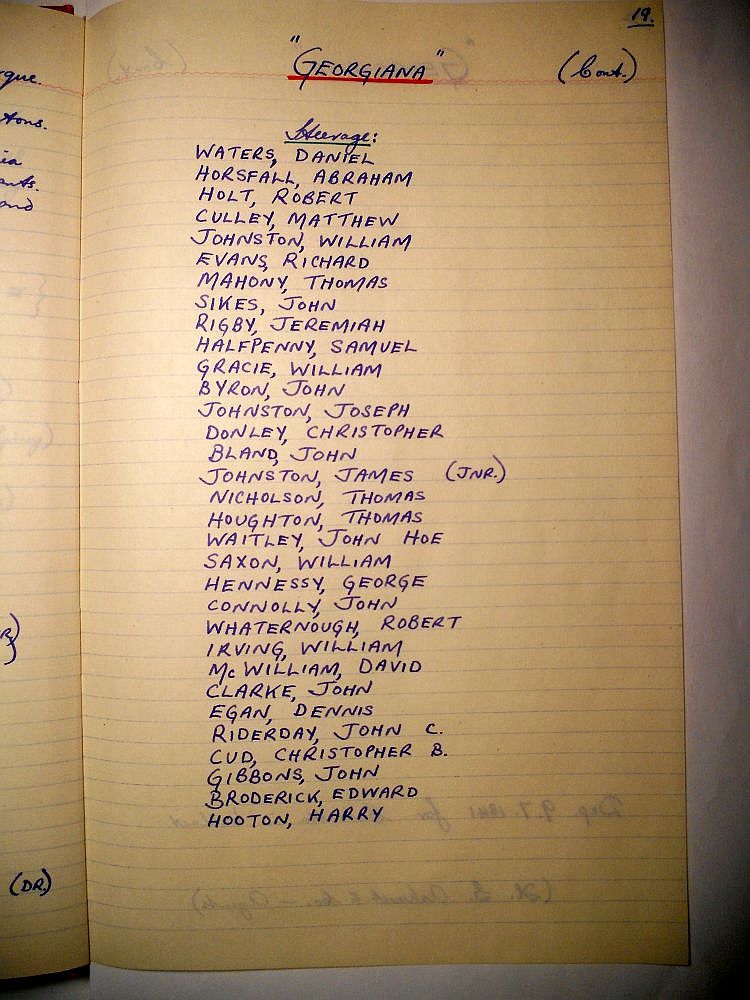 19.
"GEORGIANA" (Cont.)
Steerage:
WATERS, DANIEL
HORSFALL, ABRAHAM
HOLT, ROBERT
CULLEY, MATTHEW
JOHNSTON, WILLIAM
EVANS, RICHARD
MAHONY, THOMAS
SIKES, JOHN
RIGBY, JEREMIAH
HALFPENNY, SAMUEL
GRACIE, WILLIAM
BYRON, JOHN
JOHNSTON, JOSEPH
DONLEY, CHRISTOPHER
BLAND, JOHN
JOHNSTON, JAMES (JNR.)
NICHOLSON, THOMAS
HOUGHTON, THOMAS
WAITLEY, JOHN HOE
SAXON, WILLIAM
HENNESSY, GEORGE
CONNOLLY, JOHN
WHATERNOUGH, ROBERT
IRVING, WILLIAM
McWILLIAM, DAVID
CLARKE, JOHN
EGAN, DENNIS
RIDERDAY, JOHN C.
CUD, CHRISTOPHER B.
GIBBONS, JOHN
BRODERICK, EDWARD
HOOTON, HARRY
(DR.)